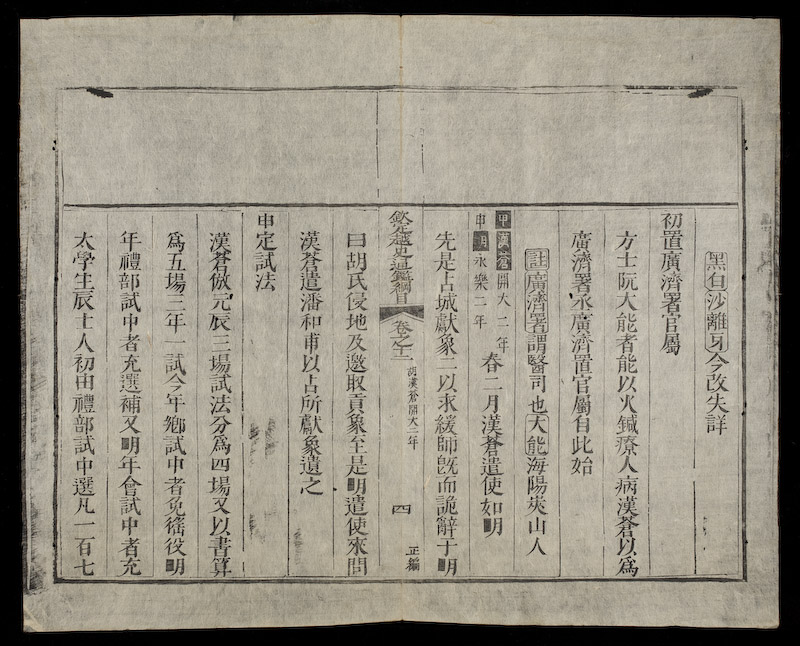 黑白沙離牙今改失詳
初置廣濟署官屬
方士阮大能者能以火鍼療人病漢蒼以爲
廣濟署丞廣濟置官屬自此始
註廣濟署謂醫司也大能海陽夾山人
甲漢蒼開大二年
申明永樂二年
春二月漢蒼遣使如明
先是占城獻象二以求緩師旣而詭辭于明
欽定越史通鑑綱目 卷之十二 胡漢蒼開大二年 四 正編
曰胡氏侵地及邀取貢象至是明遣使來問
漢蒼遣潘和甫以占所獻象遺之
申定試法
漢蒼倣元辰三場試法分爲四場又以書算
爲五場三年一試今年鄉試中者免徭役明
年禮部試中者充選補又明年會試中者充
太學生辰士人初由禮部試中選凡一百七